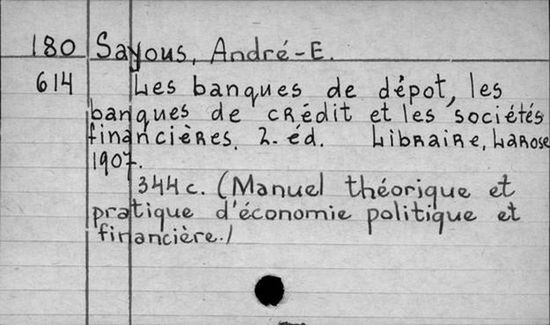 180 Sayous, André-E.
614 Les banques de dépot, les
banques de crédit et les sociétés
financières. 2. éd. Libraire, Larose
1907.
344 c. (Manuel théorique et
pratique d'économie politique et
financière.)